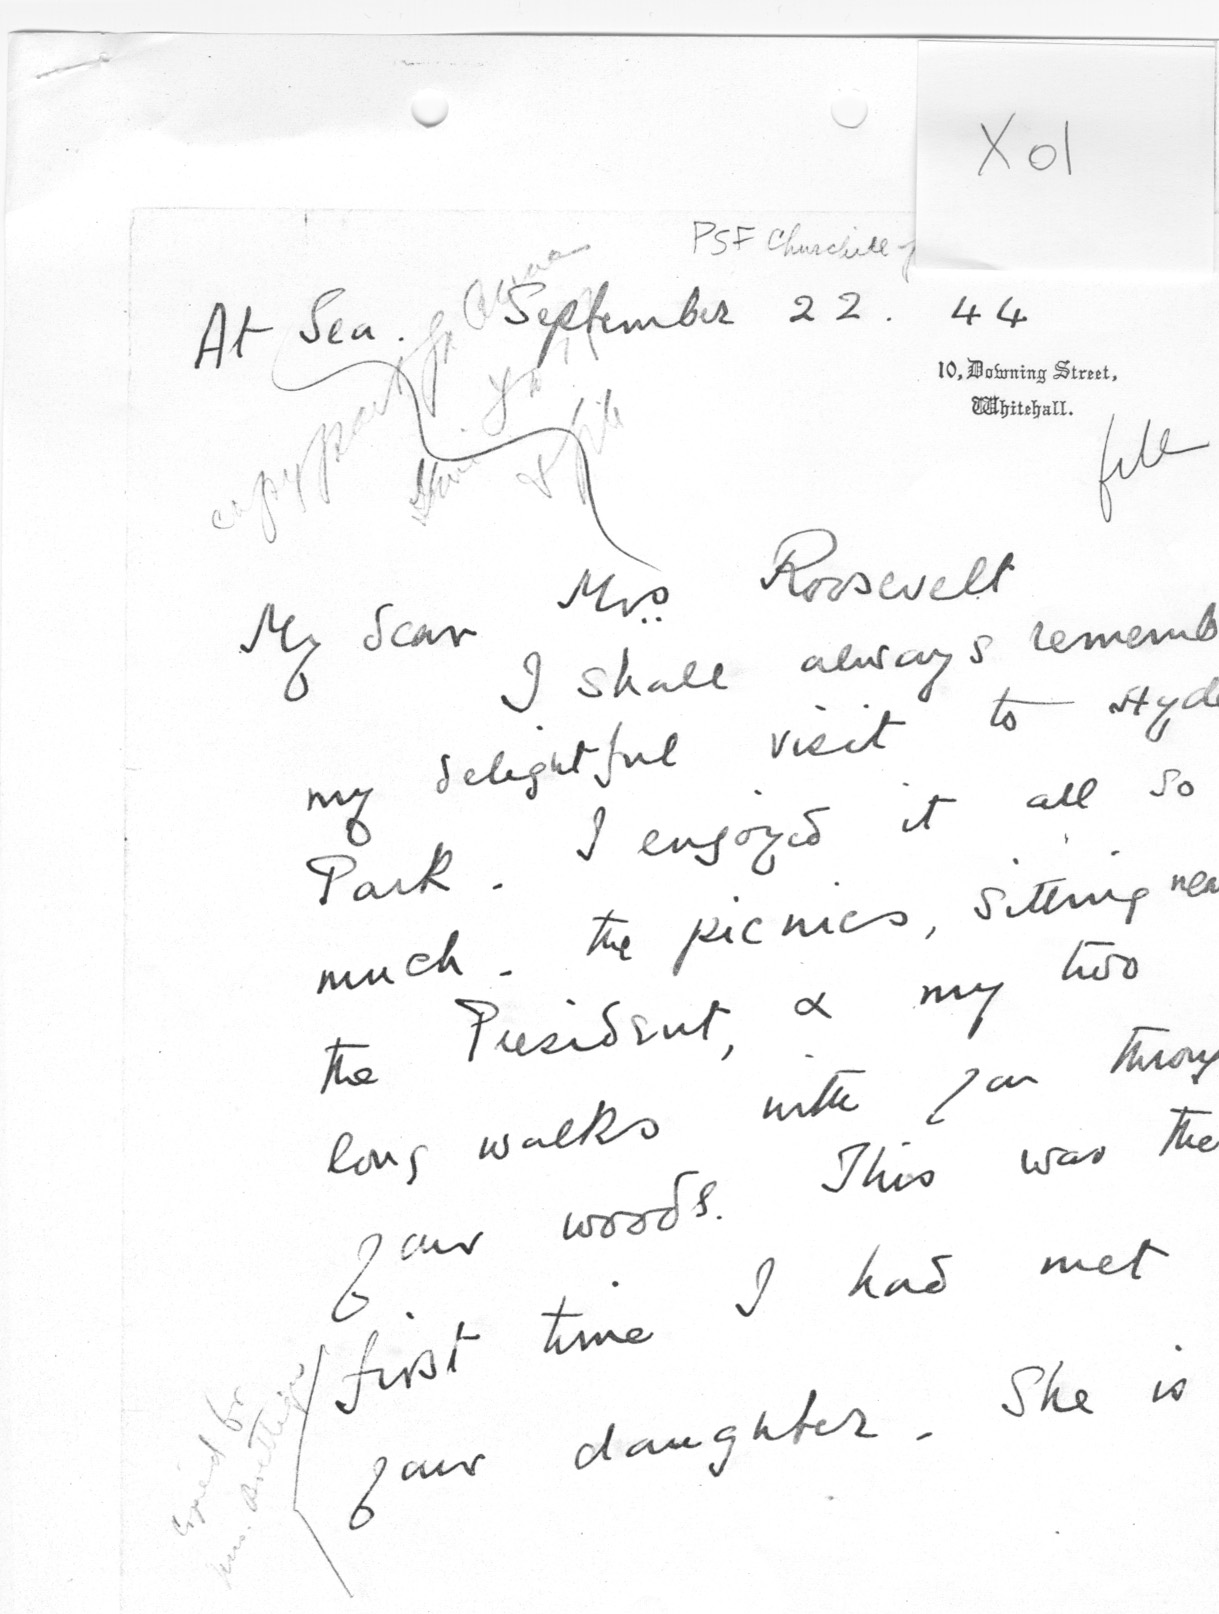 X01
PSF Churchill
At Sea. September 22. 44
10, Downing Street,
Whitehall.
file
copy part for Anna
& file
My dear Mrs Roosevelt
I shall always rememb
my delightful visit to Hyde
Park. I enjoyed it all so
much. The picnics, sitting near
the President, & my two
long walks with you throug
your woods. This was the
first time I had met
your daughter. She is
Copied for
Mrs. Boettiger